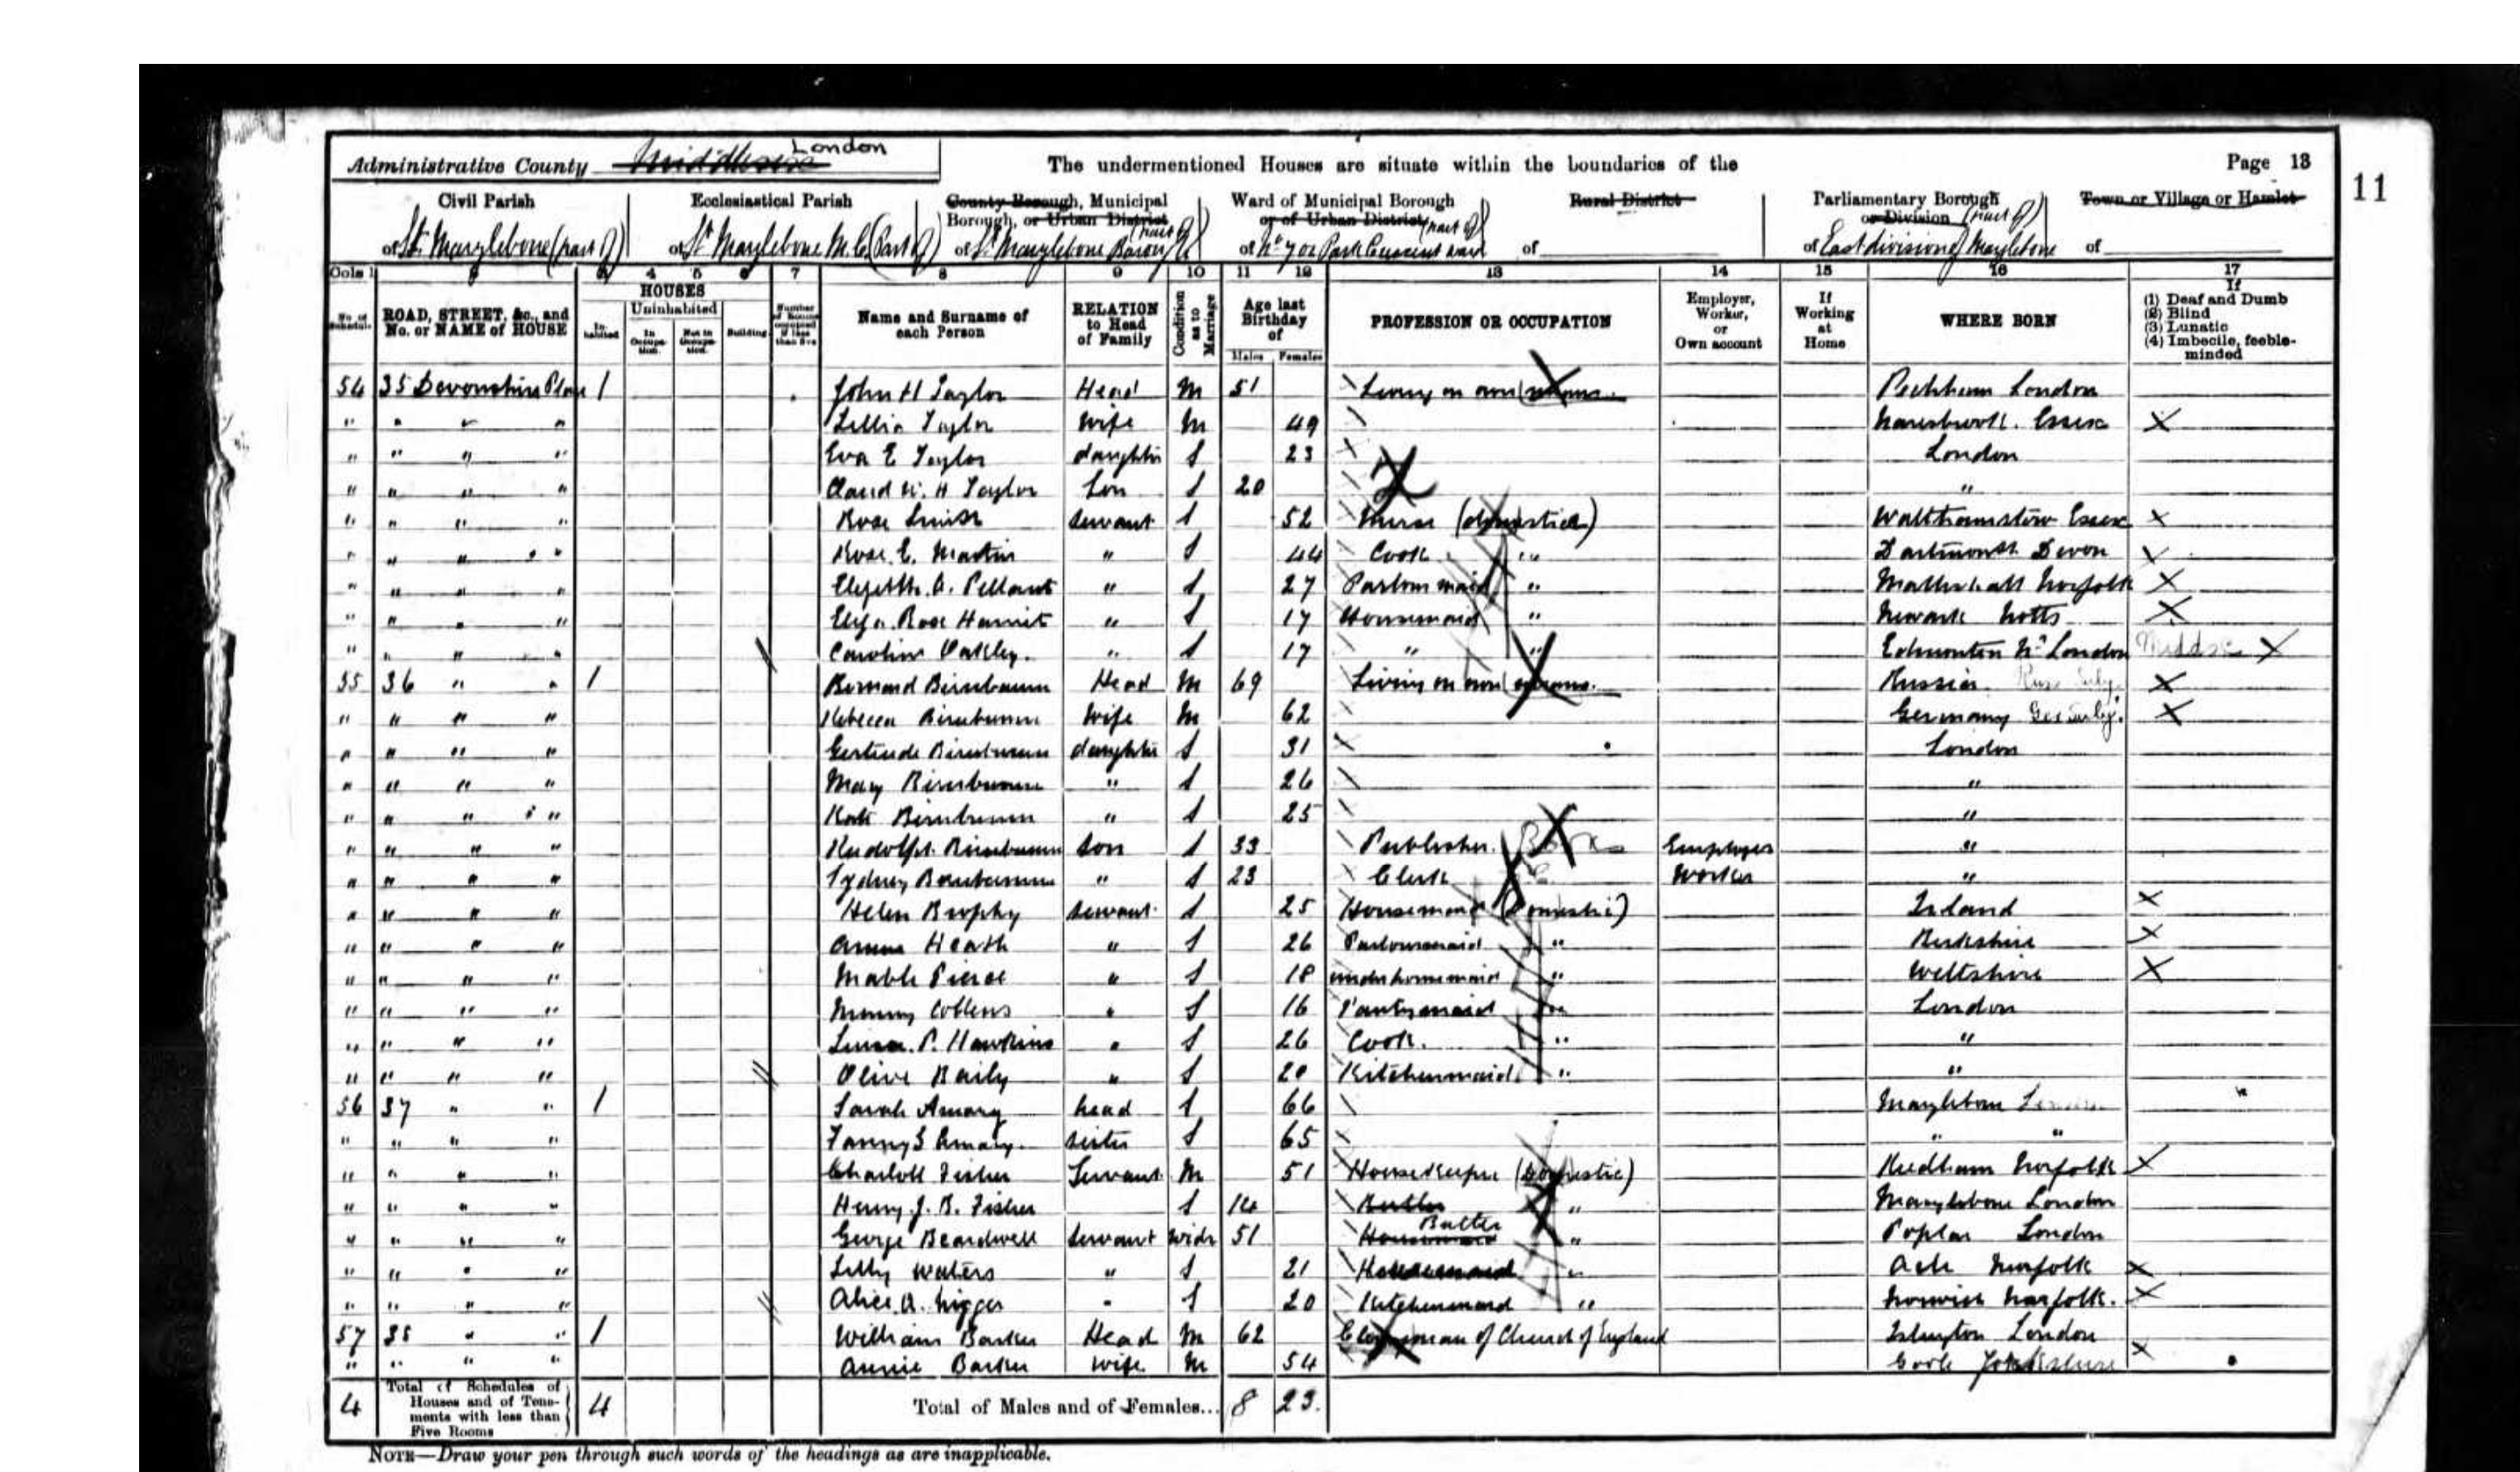 Administrative County Middlesex London The undermentioned Houses are situate within the boundaries of the Page 13
11
Civil Parish Ecclesiastical Parish County Borough, Municipal Borough, or Urban District Ward of Municipal Borough or of Urban District Rural District Parliamentary Borough or Division Town or Village or Hamlet
of St. Marylebone (part of) of St Marylebone M.C. (Part of) of St Marylebone Borough (part of) of No 7 or Park Crescent ward (part of) of of East division of Marylebone (part of) of
Cols 1 2 3 4 5 6 7 8 9 10 11 12 13 14 15 16 17
No. of Schedule ROAD, STREET, &c., and No. or NAME of HOUSE HOUSES Inhabited Uninhabited In Occupation. Not in Occupation. Building Number of Rooms occupied if less than five Name and Surname of each Person RELATION to Head of Family Condition as to Marriage Age last Birthday of Males Females PROFESSION OR OCCUPATION Employer, Worker, or Own account If Working at Home WHERE BORN If (1) Deaf and Dumb (2) Blind (3) Lunatic (4) Imbecile, feeble-minded
54 35 Devonshire Place 1 John H Taylor Head M 51 Living on own means. Peckham London
" " " " Lillia Taylor Wife M 49 Essex
" " " " Eva E Taylor daughter S 23 London
" " " " Claud W. H Taylor Son S 20 "
" " " " Rose servant S 52 Nurse (domestic) Walthamstow Essex
" " " " Rose E. Martin " S 44 Cook " Dartmouth Devon
" " " " Elizbth. A. Pellant " S 27 Parlour maid " Norfolk
" " " " Eliza Rose " S 17 Housemaid " Newark Notts
" " " " Caroline Oakley. " S 17 " " Edmonton Nr London Middsx
55 36 " " 1 Bernard Birnbaum Head M 69 Living on own means. Russia
" " " " Rebecca Birnbaum Wife M 62 Germany
" " " " Gertrude Birnbaum daughter S 31 London
" " " " Mary Birnbaum " S 26 "
" " " " Kate Birnbaum " S 25 "
" " " " Rudolph Birnbaum son S 33 Publisher. Employer "
" " " " Sydney Birnbaum " S 23 Clerk Worker "
" " " " Helen Brophy servant S 25 Housemaid (Domestic) Ireland
" " " " Heath " S 26 Parlourmaid " Berkshire
" " " " Mable Pierce " S 18 underhousemaid " Wiltshire
" " " " Collens " S 16 Pantrymaid " London
" " " " P. Hawkins " S 26 Cook. " "
" " " " Olive Baily " S 20 Kitchenmaid " "
56 37 " " 1 Sarah Amary head S 66 Marylebone London
" " " " Fanny S Amary. sister S 65 " "
" " " " Charlott Fisher Servant M 51 Housekeeper (Domestic) Reedham Norfolk
" " " " Henry J. B. Fisher S 14 Butler " Marylebone London
" " " " George Beardwell servant widr 51 Housemaid Butler " Poplar London
" " " " Lilly Waters " S 21 Housemaid " Acle Norfolk
" " " " Alice A. " S 20 Kitchenmaid " Norwich Norfolk.
57 38 " " 1 William Barker Head M 62 Clergyman of Church of England Islington London
" " " " Annie Barker Wife M 54 Goole Yorkshire
4 Total of Schedules of Houses and of Tenements with less than Five Rooms 4 Total of Males and of Females... 8 23.
NOTE—Draw your pen through such words of the headings as are inapplicable.